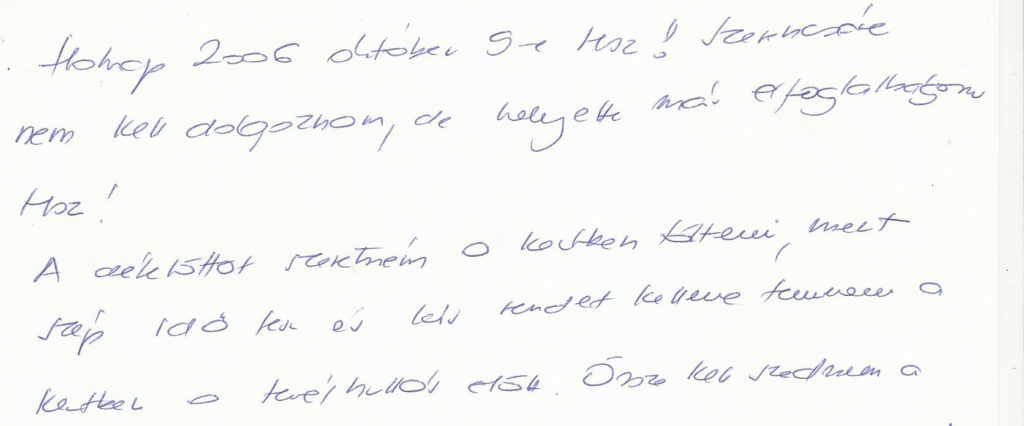 Holnap 2006 október 9-e lesz! Szerencsére
nem kell dolgoznom, de helyette már elfoglaltságom
lesz!
A délelőttöt szeretném a kertben tölteni, mert
szép idő lesz és kis rendet kellene tennem a
kertben a levélhullás előtt. Össze kell szednem a